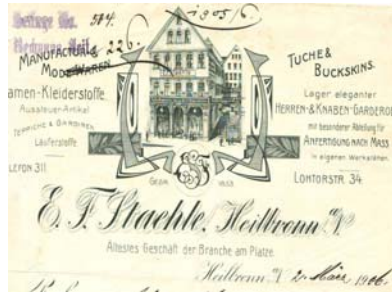 Beilage No. 584.
1905/6.
226.
MANUFACTUR &
MODEWAREN
amen-Kleiderstoffe.
Aussteuer-Artikel
TEPPICHE & GARDINEN
Läuferstoffe.
LEFON 311
TUCHE &
BUCKSKINS.
Lager eleganter
HERREN- & KNABEN-GARDEROB
mit besonderer Abteilung für
ANFERTIGUNG NACH MASS
in eigenen Werkstätten.
LOHTORSTR. 34
GEGR. 1853.
E. F. Staehle, Heilbronn a/N.
Ältestes Geschäft der Branche am Platze.
Heilbronn a/N. 2. März 1906.